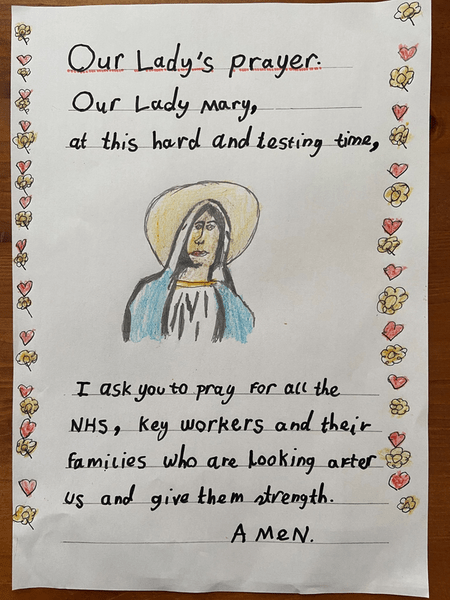 Our Lady's prayer.
Our Lady Mary,
at this hard and testing time,
I ask you to pray for all the
NHS, key workers and their
families who are looking after
us and give them strength.
AMeN.